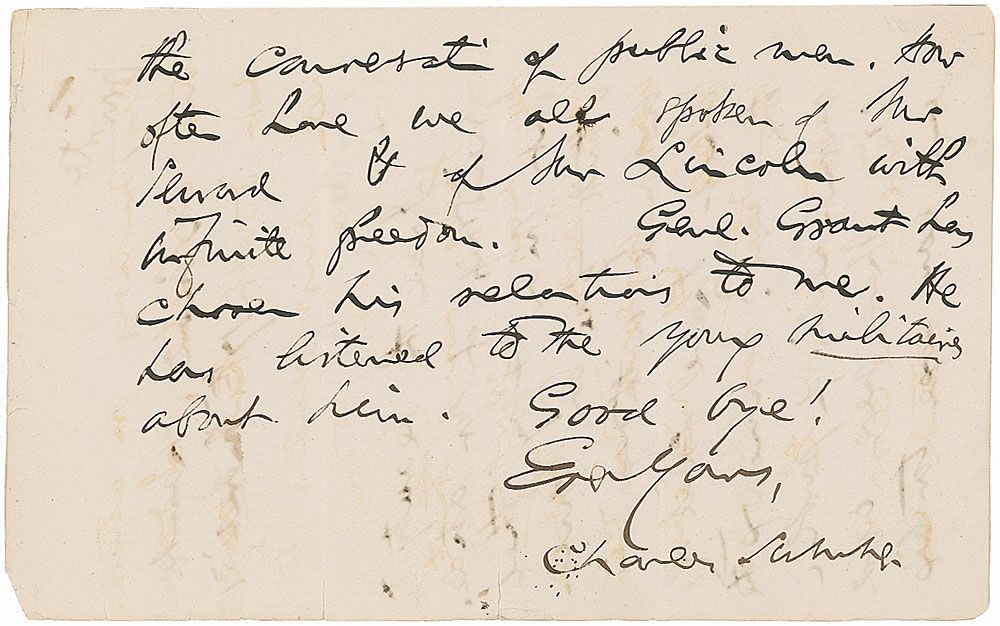 the conversati of public men. How
often have we all spoken of Mr
Seward & of Mr Lincoln with
infinite freedom. Genl. Grant has
chosen his relations to me. He
has listened to the young militaires
about him. Good bye!
Ever Yours,
Charles Sumner.